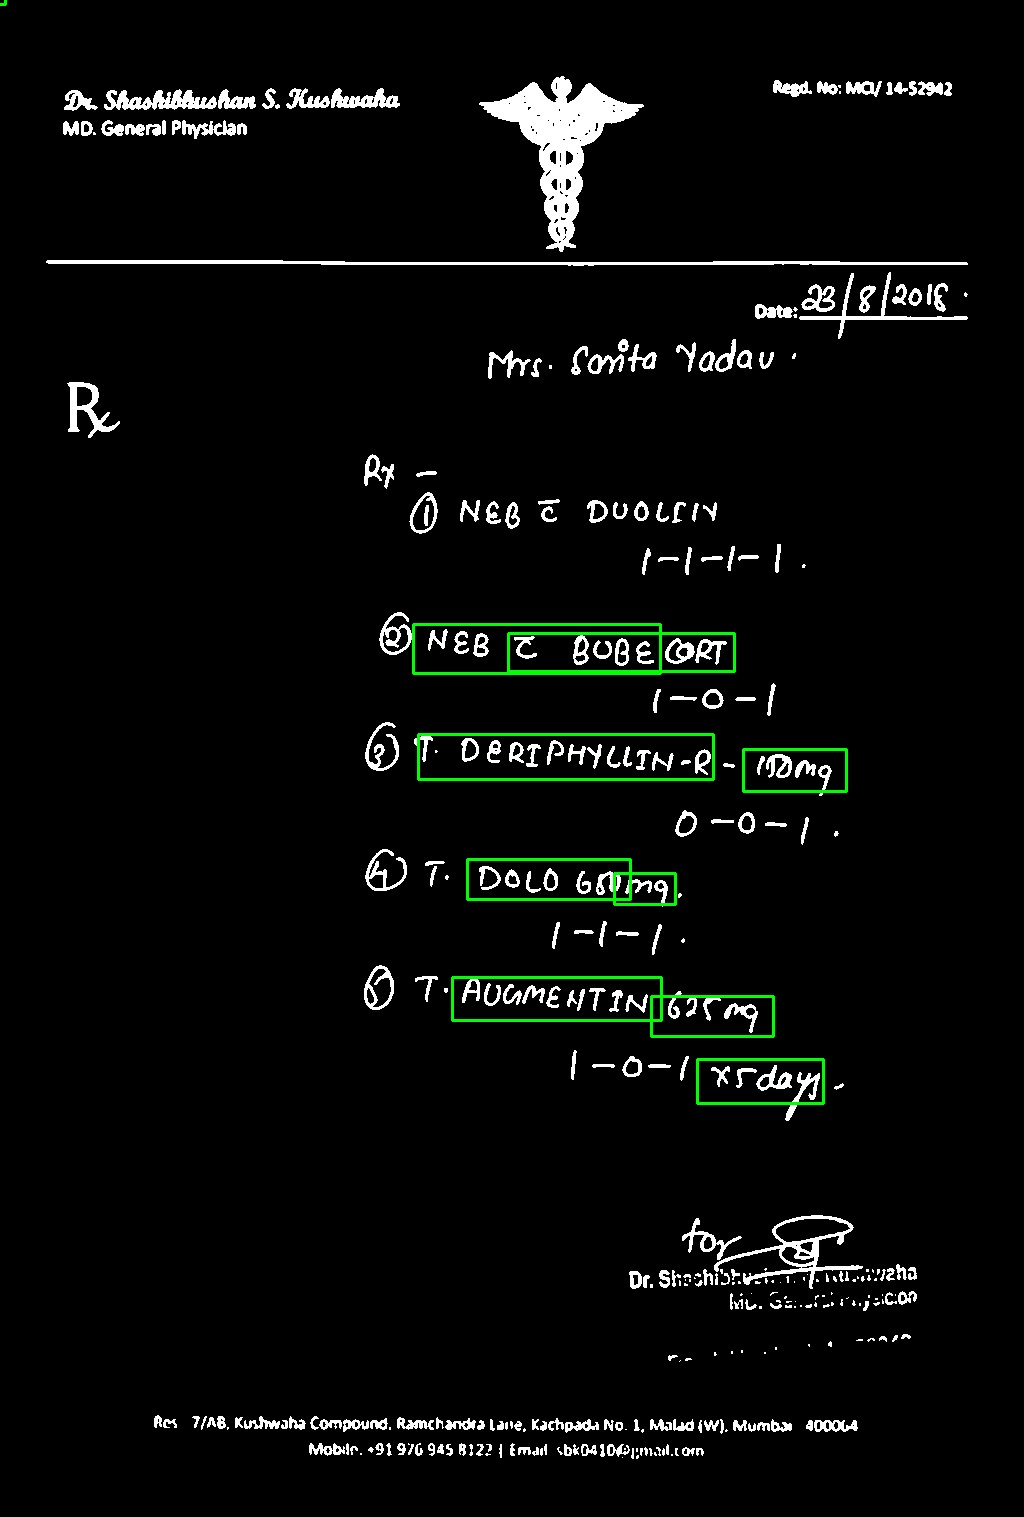 Dr. Shashibhushan S. Kushwaha
MD. General Physician
Regd. No: MCI/ 14-52942
Date: 23/8/2018
Mrs. Sarita Yadav
Rx
Rx -
① NEB c̅ DUOLIN
1-1-1-1.
② NEB c̅ BUBECORT
1-0-1
③ T. DERIPHYLLIN-R - 150mg
0-0-1.
④ T. DOLO 650mg.
1-1-1.
⑤ T. AUGMENTIN 625mg
1-0-1 x5days.
for
Dr. Shashibhushan Kushwaha
MD. General Physician
Res 7/AB, Kushwaha Compound, Ramchandra Lane, Kachpada No. 1, Malad (W), Mumbai 400064
Mobile. +91 976 945 8122 | Email sbk0410@gmail.com